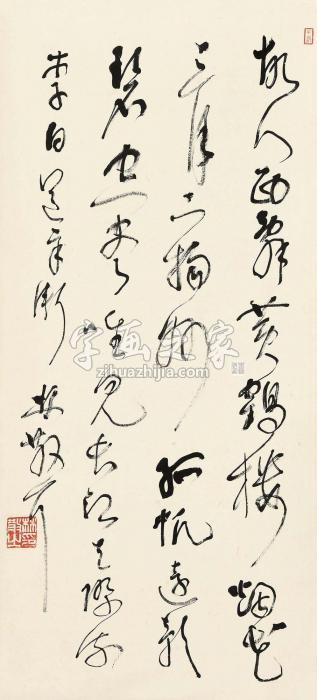 故人西辞黄鹤楼 烟花
三月下扬州 孤帆远影
碧空尽 唯见长江天际流
李白送孟浩然 林散耳
字画之家
zihuazhijia.com
林散之